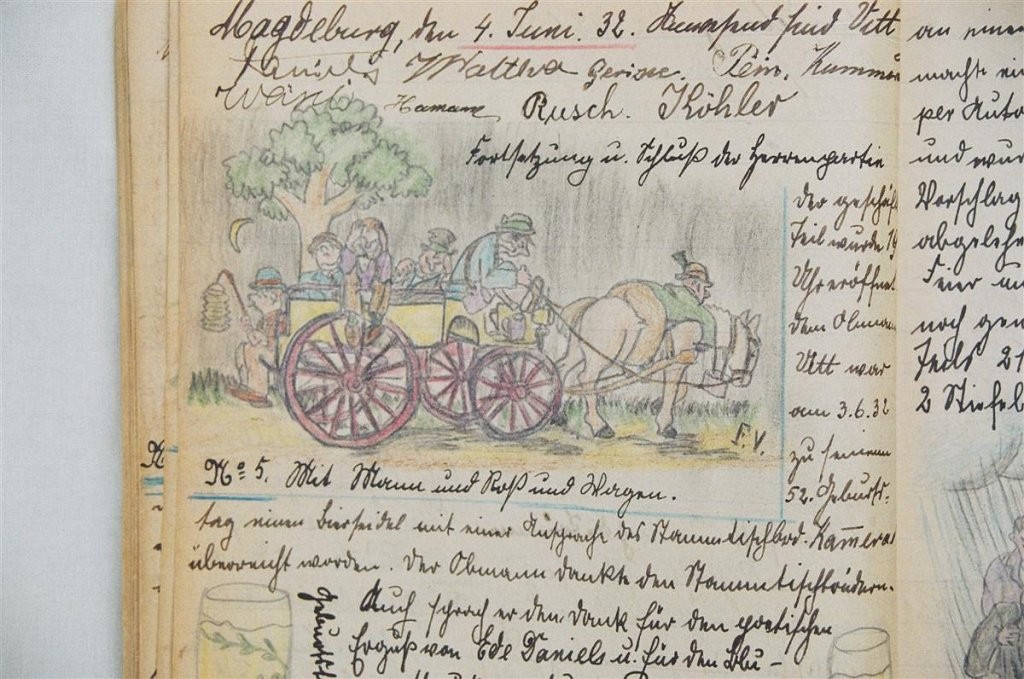 Magdeburg, den 4. Juni. 32. Anwesend sind Vitt
Daniels Matthes Gericke. Pein. Kummer
Hamann Rusch. Köhler
Fortsetzung u. Schluß der Herrenpartie
Der geschäf
Teil wurde 19
Uhr eröffnet
dem Obmann
Vitt war
am 3.6.32
zu seinem
52. Geburts-
F.V.
No 5. Mit Mann und Roß und Wagen.
tag einen Bierseidel mit einer Ansprache des Stammtischbrd. Kamerad
überreicht worden. Der Obmann dankte den Stammtischbrüdern.
Auch sprach er den Dank für den poetischen
Erguß von Ede Daniels u. für den Blu-
Geburtst
an einem
machte ein
per Auto
und wur
Vorschlag
abgelehn
Feier un
noch gen
Teils 21
2 Stiefel